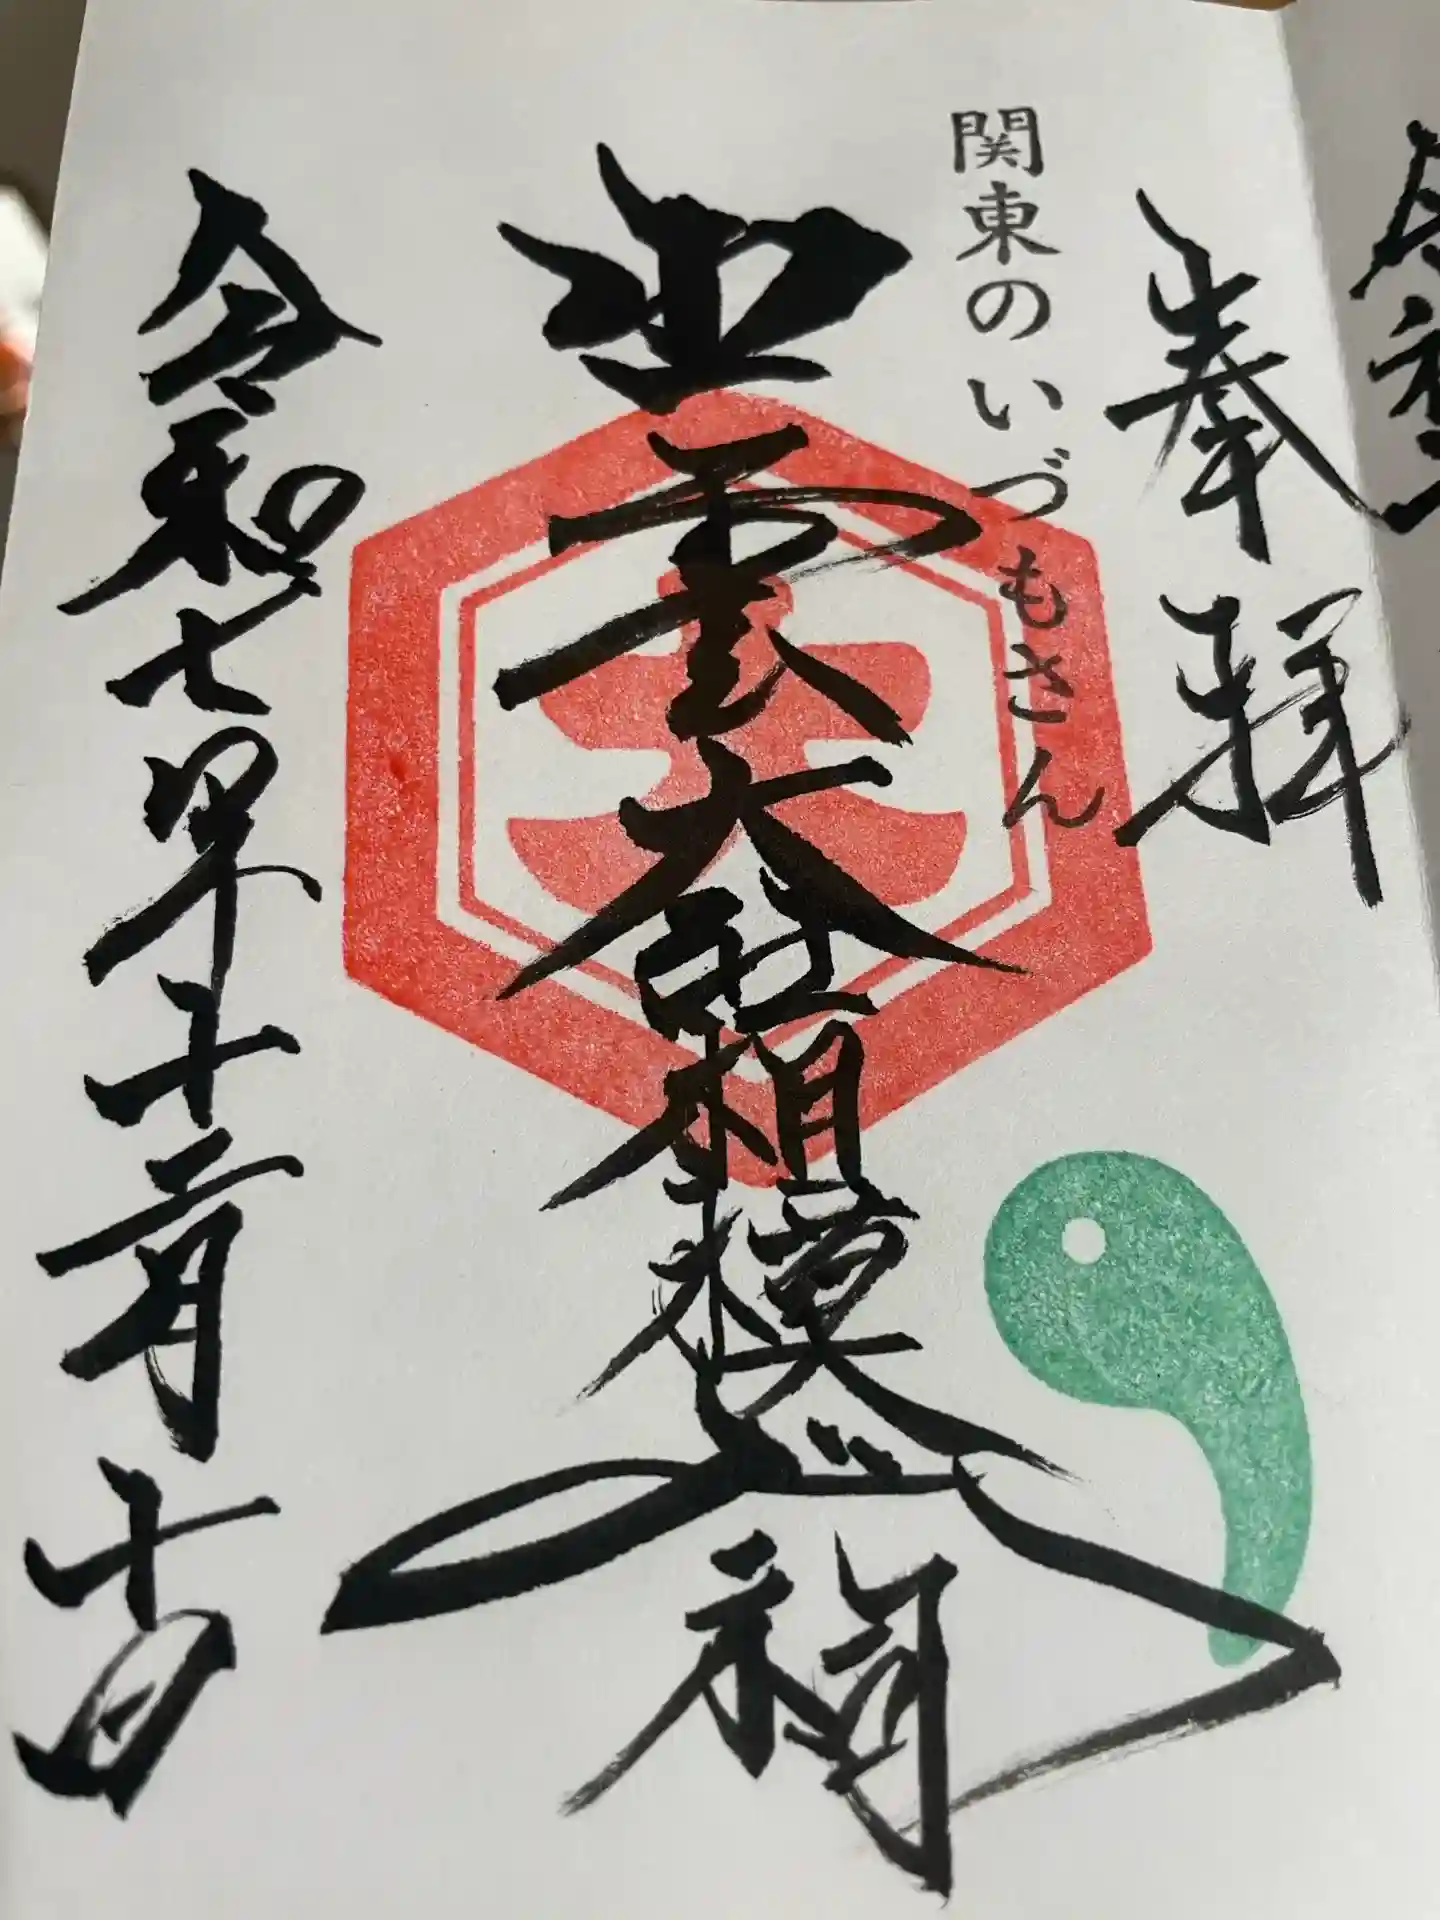 奉拝
関東のいづもさん
出雲大社相模分祠
大
令和七年十二月十日